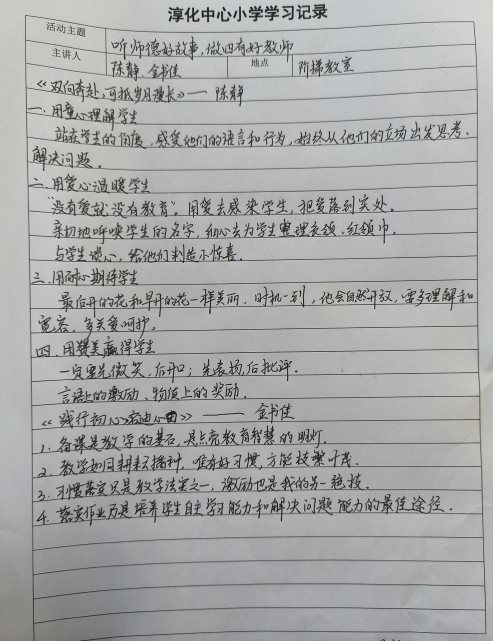 淳化中心小学学习记录
活动主题 听师德好故事，做四有好教师
主讲人 陈静、金书佳 地点 阶梯教室
《双向奔赴，可抵岁月漫长》— 陈静
一. 用童心理解学生
站在学生的角度，感受他们的语言和行为，始终从他们的立场出发思考、
解决问题。
二. 用爱心温暖学生
“没有爱就没有教育”。用爱去感染学生，把爱落到实处。
亲切地呼唤学生的名字，细心去为学生整理衣领、红领巾。
与学生谈心，给他们制造小惊喜。
三. 用耐心期待学生
最后开的花和早开的花一样美丽，时机一到，他会自然开放，要多理解和
宽容，多关爱呵护。
四. 用赞美赢得学生
一定要先微笑，后开口；先表扬，后批评.
言语上的激励、物质上的奖励.
《践行初心 》—— 金书佳
1. 备课是教学的基石，是点亮教育智慧的明灯.
2. 教学如同耕耘播种，唯有好习惯，方能枝繁叶茂.
3. 习惯落实只是教学法宝之一，激励也是我的另一绝技.
4. 落实作业乃是培养学生自主学习能力和解决问题能力的最佳途径.